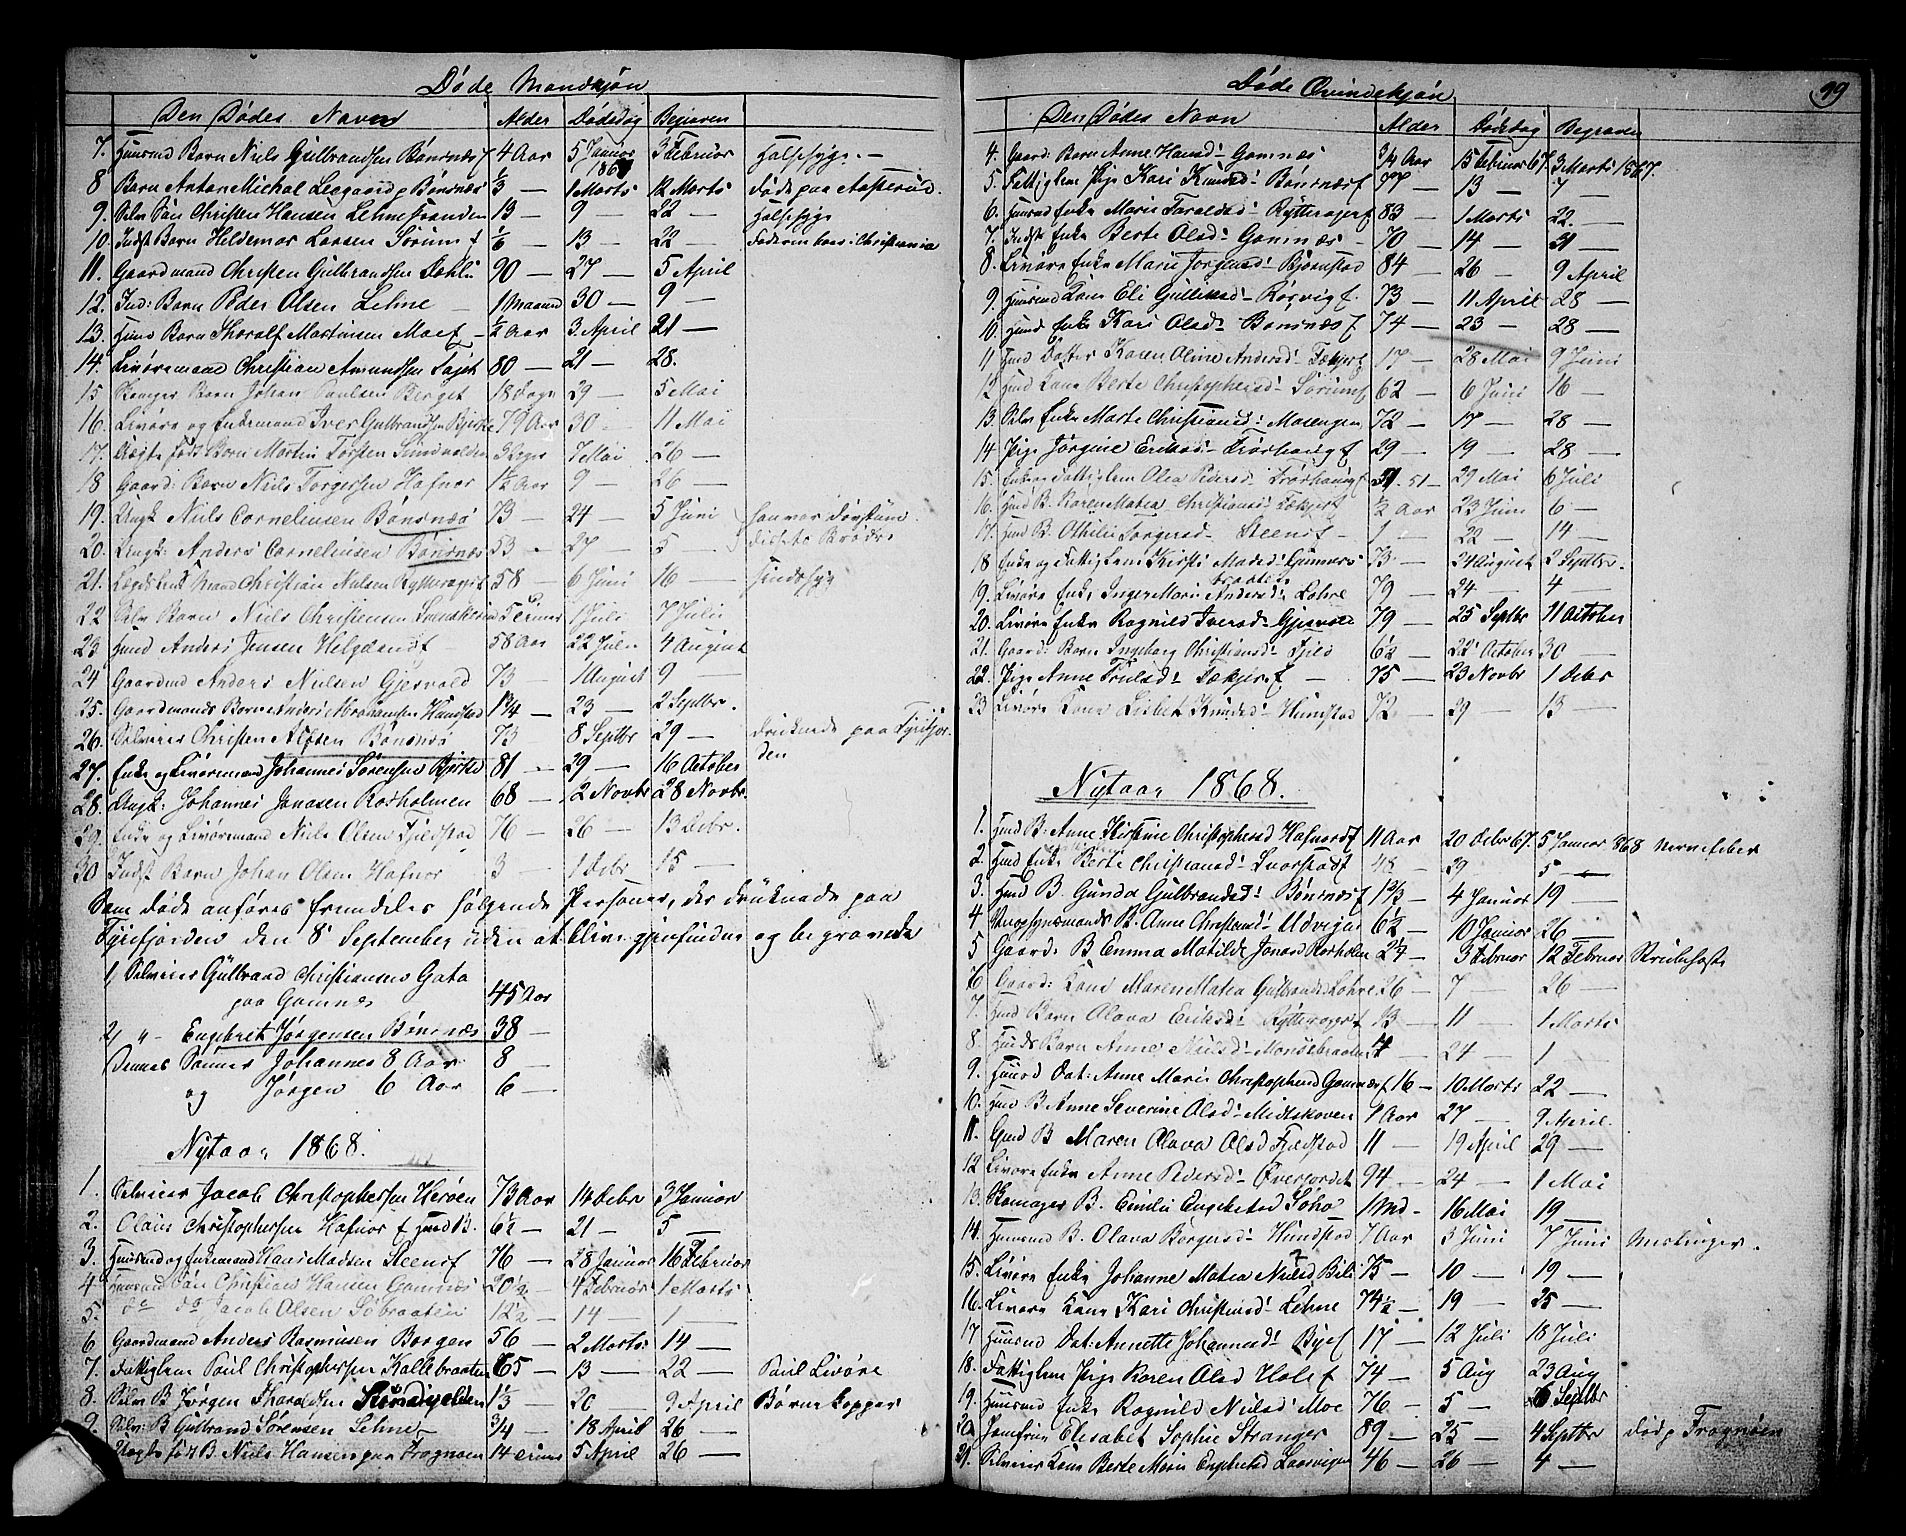 Døde Mandkjøn
Den Dødes Navn Alder Dødsdag Begraven
7. Huusmd Barn Niels Gulbrandsen Bønsnæsf 4 Aar 5 Januar 1867 3 Februar Halssyge —
8 Barn Anton Michal Leegaard p Bønsnæs 1/3 — 1 Marts 12 Marts Føde paa Aasterud.
9. Selv Søn Christen Hansen Lehnestranden 13 — 9 — 22 — Halssyge
10. Indst Barn Heldemar Larsen Sørum f 1/6 — 13 — 22 — Faderen boer i Christiania
11. Gaardmand Christen Gulbrandsen Dæhli 90 — 27 — 5 April
12. Ind: Barn Peder Olsen Lehne 1 Maaned 30 — 9 —
13. Hmd Barn Thoralf Martinsen Moef 1/2 Aar 3 April 21 —
14. Livøremand Christian Amundsen Fajet 80 — 21 — 28.
15 Barn Johan Paulsen Berget 18 Dage 29 — 5 Mai
16. Livøre og Enkemand Iver Gulbrandsen Bjerke 79 Aar 30 — 11 Mai
17. Uægte født Barn Martin Torsten Sundvolden 3 7 Mai 26 —
18 Gaard: Barn Niels Torgersen Hafnor 1 1/2 Aar 9 — 26 —
19. Ungk Niels Corneliussen Bønsnæs 73 — 24 — 5 Juni
20. Ungk: Anders Corneliussen Bønsnæs 53 — 27 — 5 —
21. Lægdslem Mand Christian Nielsen Rytteragerf 58 — 6 Juni 16 —
22 Selv Barn Niels Christensen 7 Timer 1 Juli 7 Juli
23 Hmd Anders Jensen Helgelandf 58 Aar 22 Juli 4 August
24 Gaardmd Anders Nielsen Gjesvold 73 — 1 August 9 —
25. Gaardmands Barn Anders Abrahamsen Hundstad 1 3/4 — 23 — 2 Septbr.
26. Selveier Christen Alfsen Bønsnæs 73 — 8 Septbr 29 — druknede paa Tyrifjor-
den
27. Enke og Livøremand Johannes Sørensen Bjerke 81 — 29 — 16 October
28. Ungk: Johannes Jonasen Rorholmen 68 — 2 Novbr 28 Novbr.
29. Enke og Livøremand Niels Olsen Fjeldstad 76 — 26 — 13 Debr.
30 Indst Barn Johan Olsen Hafnor 3 — 1 Debr 15 —
Som døde anføres fremdeles følgende Personer, der druknede paa
Tyrifjorden den 8 September uden at blive gjenfundne og begravede
1, Selveier Gulbrand Christiansen Gata
paa Gomnes 45 Aar
2, " — Engebret Jørgensen Bønsnæs 38 —
Dennes Sønner Johannes 8 Aar 8 —
og Jørgen 6 Aar 6 —
Nytaar 1868.
1. Selveier Jacob Christophersen Herøen 73 Aar 14 Debr 3 Januar
2. Olaus Christophersen Hafnor f Hmd B. 6 1/2 — 21 — 5 —
3. Huusmd og Enkemand Hans Madsen Steensf 76 — 28 Januar 16 Februar
4 Huusmd Søn Christian Hansen Gomnæs 20 1/2 — 4 Februar 1 Marts
5. do do Jacob Olsen Søbraaten 12 1/2 14 — 1 —
6 Gaardmand Anders Rasmusen Borgen 56 — 2 Marts 14 —
7. Fattiglem Paul Christophersen Kallebraaten 65 — 13 — 22 — Paul Livøre
8. Selv B Jørgen Tharaldsen Sundvolden 1/3 — 20 — 9 April Børnekopper
9. Selv: B Gulbrand Sørensen Lehnef 3/4 — 18 April 26 —
Uægte født B. Niels Hansen paa Frognøen 14 5 April 26 —
Døde Qvindekjøn 99
Den Dødes Navn Alder Dødsdag Begraven
4. Gaard: Barn Anne Hansd: Gomnæs 3/4 Aar 15 Februar 67. 3 Marts 1867.
5. Fattiglem Pige Kari Knudsd: Bønsnæsf 77 — 13 — 7 —
6. Huusmd Enke Marie Taraldsd: Rytteragerf 83 — 1 Marts 22. —
7. Indst Enke Berte Olsd: Gomnæs 70 — 14 — 31 —
8. Livøre Enke Marie Jørgensd: Bjørnstad 84 — 26 — 9 April
9. Huusmd Kone Eli Gulliksd: Rørvig f. 73 — 11 April 28 —
10. Hmd: Enke Kari Olsd: Bønsnæs f 74 — 23 — 28 —
11 Hmd Datter Karen Oline Andersd: 17 — 28 Mai 9 Juni
12 Hmd Kone Berte Christophersd: Sørumf 62 — 6 Juni 16 —
13. Selv Enke Marte Christiansd: Mosengen 72 — 17 — 28 —
14 Pige Jørgine Eriksd: f 29 — 19 — 28 —
15. Enke og Fattiglem Olea Pedersd: 51 — 29 Mai 6 Juli
16. Hmd B. Karen Matea Christiansd: 1/2 Aar 23 Juni 6 —
17. Hmd B. Othilie Torgersd: Steensf — 1 — 22 — 14 —
18 Enke og Fattiglem Kirsti Madsd: Gunners-
braaten 73 — 24 August 2 Septbr.
19. Livøre Enke Inger Marie Andersd: Lohre 79 — 24 — 4
20. Livøre Enke Ragnild Iversd: Gjesvold 79 — 25 Septbr 11 October
21. Gaard: Barn Ingeborg Christiansd: Fjeld 6 1/2 — 22 October 30 —
22. Pige Anne Truelsd: f — 75 — 23 Novbr 1 Debr
23 Livøre Kone Lisbet Knudsd: Hundstad 72 — 29 — 13 —
Nytaar 1868.
1. Hmd B: Anne Kirstine Christophersd Hafnorsf 11 Aar 20 Debr 67. 5 Januar 868 Nervefeber
2. Hmd Enke Berte Christiansd: Svarstadf 48 — 29 5 —
3. Hmd B. Gunda Gulbrandsd: Bønsnæsf 1 2/3 — 4 Januar 19 —
4 B. Anne Christiansd: Udvigen 6 1/2 — 10 Januar 26 —
5 Gaard: B Emma Matilde Jonasd Rorholmen 2 1/4 — 3 Februar 12 Februar Strubehoste
6. Gaard: Kone Maren Matea Gulbrandsd Lohre 26 — 7 — 26 —
7. Hmd Barn Olava Eriksd: Rytteragerf 13 — 11 — 1 Marts
8. Hmds Barn Anne Nielsd: Monsebraaten 4 — 24 — 1
9. Huusd Dat: Anne Marie Christophersd Gomnæsf 16 — 10 Marts 22 —
10. Hmd B Anne Severine Olsd: Midtskoven 1 Aar 27 — 9 April.
11. Gmd B Maren Olava Olsd Fjeldstad 11 — 19 April 29 —
12 Livøre Enke Anne Pedersd: Øverjordet 94 — 24 — 1 Mai
13. Skomager B. Emilie Engebretsd Søhol 1 Md — 16 Mai 19 —
14. Huusmd B. Olava Børgersd: Hundstad 7 Aar 3 Juni 7 Juni Meslinger.
15. Livøre Enke Johanne Matea Nielsd Bili 75 — 10 — 19 —
16. Livøre Kone Kari Christensd: Lehne 74 1/2 — 19 — 25 —
17 Huusmd Dat: Annette Johannesd: Byef 17 — 12 Juli 18 Juli
18. Fattiglem Pige Karen Olsd Hole f 74 — 5 Aug 23 Aug
19. Huusmd Enke Ragnild Nielsd: Moe 76 — 5 — Septbr
20 Jomfrue Elisabet Sophie Stranger 89 — 25 — 4 Septbr død p Frognøen
21. Selveier Kone Berte Marie Engebretsd Laarvigen 46 — 26 — 4 —